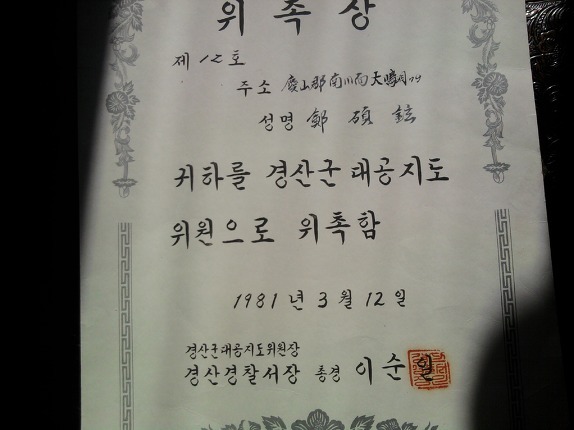 위촉장
제 12 호
주소 慶山郡 南川面 大鳴洞
성명 鄭 碩 鉉
귀하를 경산군 대공지도
위원으로 위촉함
1981 년 3 월 12 일
경산군대공지도위원장
경산경찰서장 총경 이순일